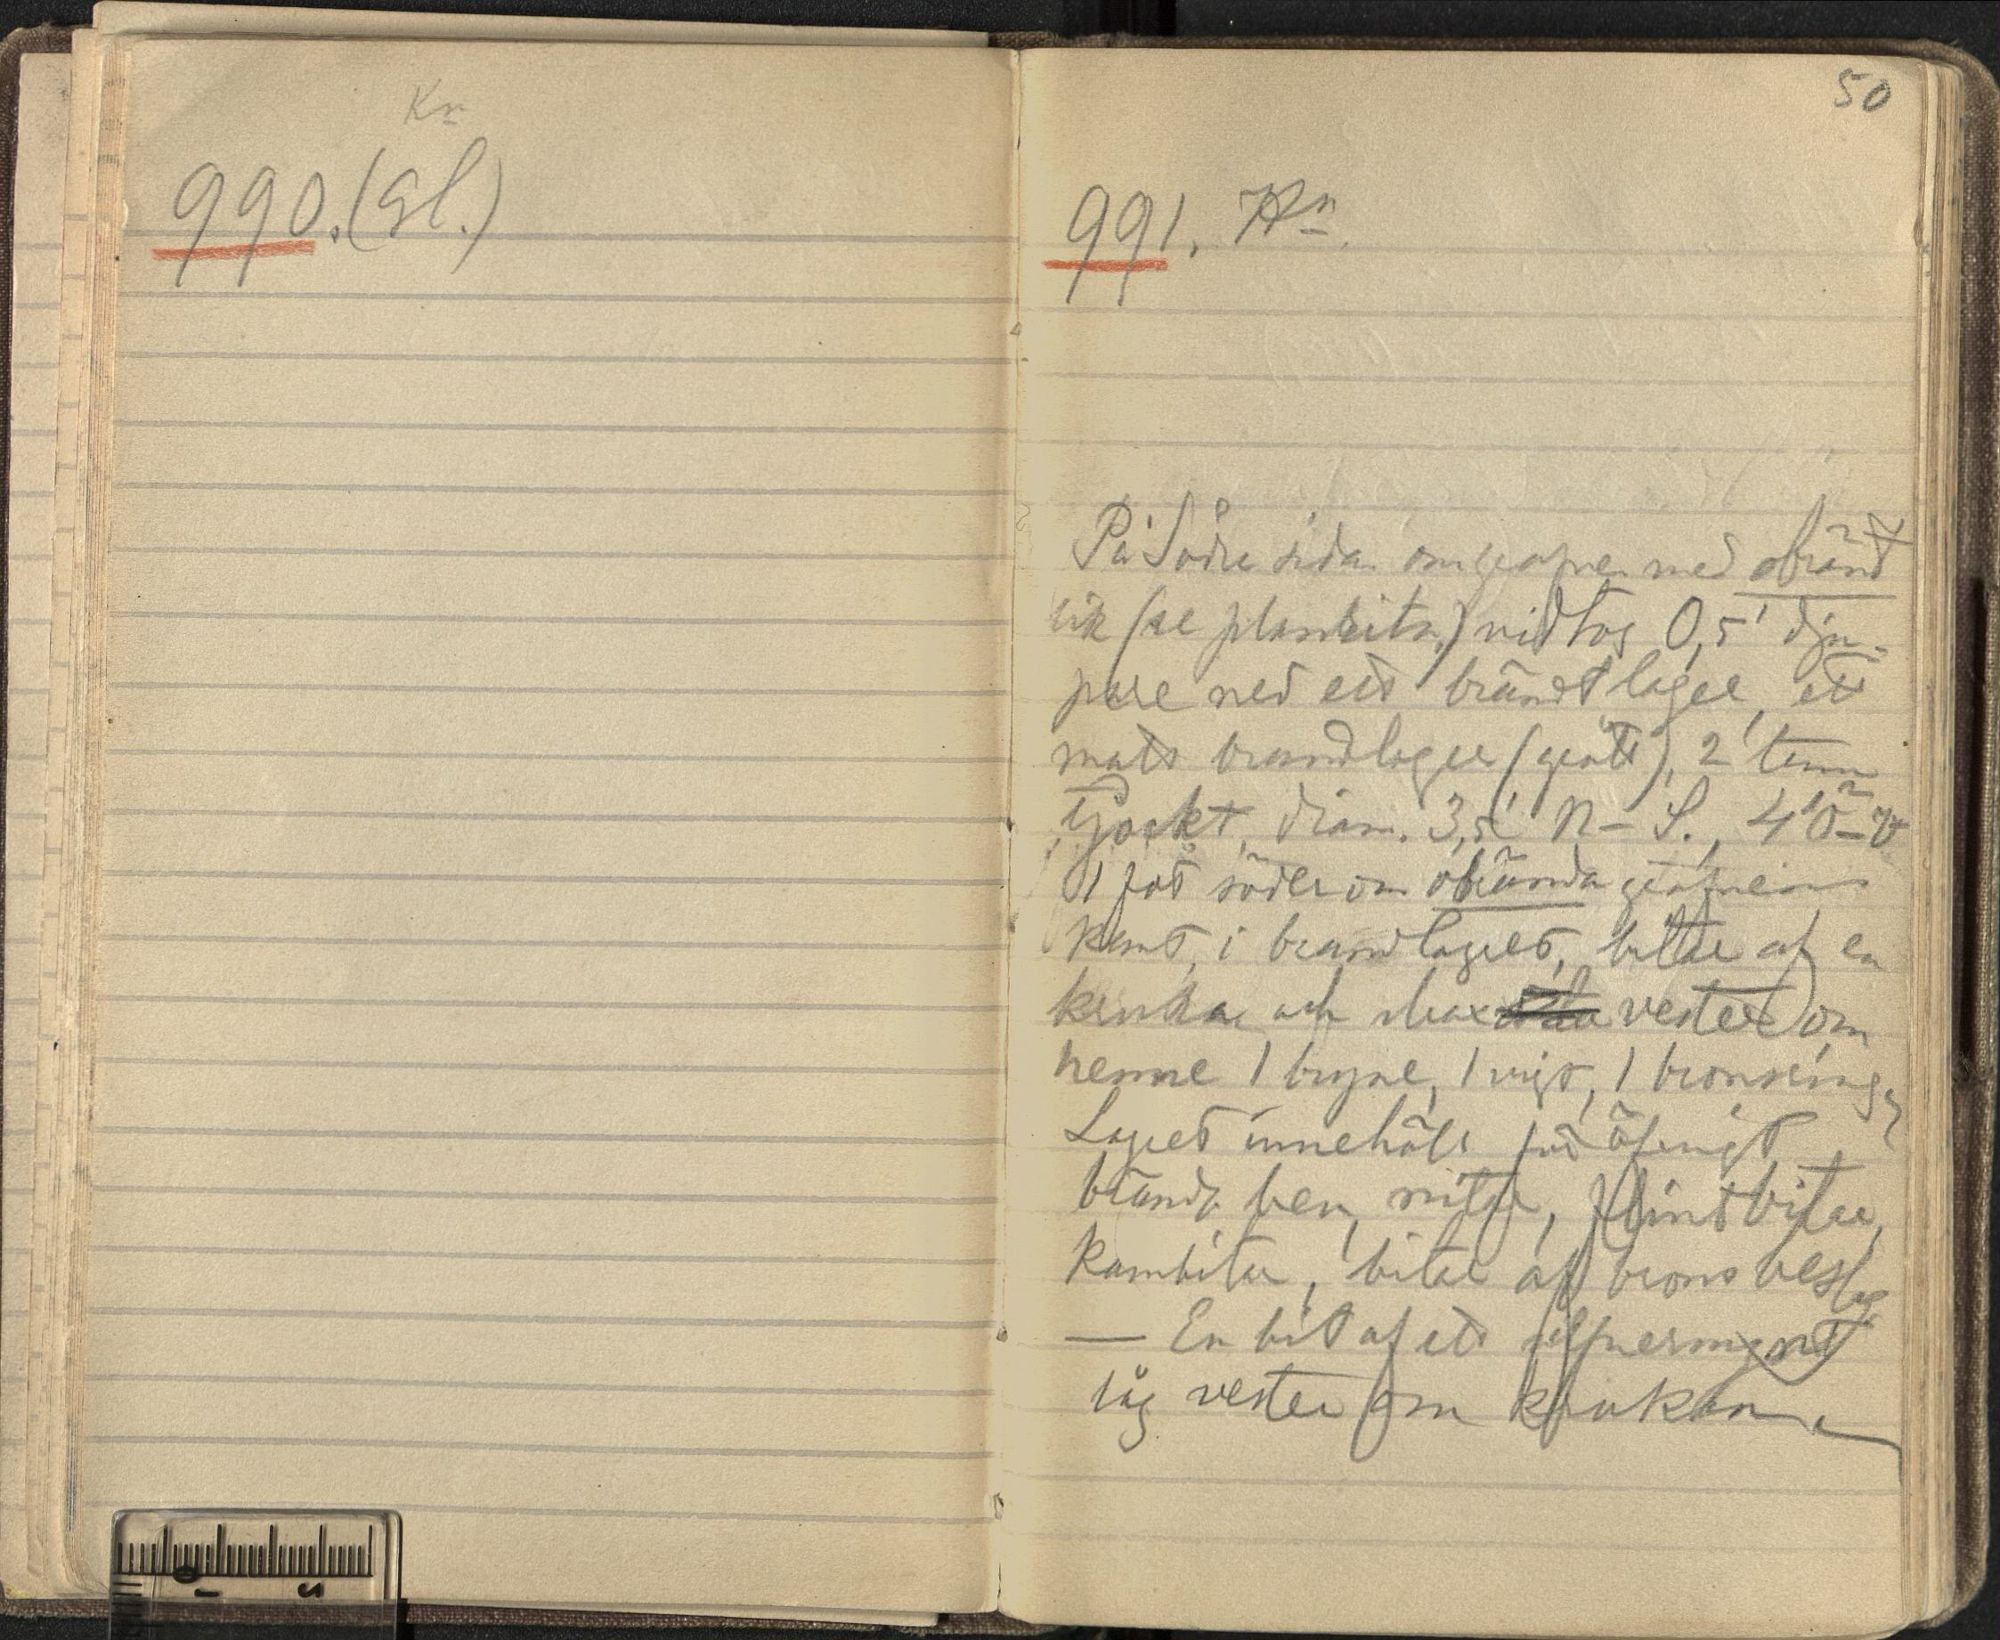 Kn
990. (Gl.)
50
991. Kn
På Södra sidan om grafven med obrändt
lik (se planskita) vidtog 0,5' dju-
pare ned ett brändt lager, ett
matt brandlager (grått), 2' tum
tjockt, diam. 3,5' N–S., 4' Ö–V
1 fot söder om obrända grafvens
kant, i brandlagret, bitar af en
kruka, och strax vester om
henne 1 bryne, 1 vigt, 1 bronsring,
Lagret innehöll för öfrigt
brända ben, nitar, flintbitar,
kambitar, bitar af bronsbeslag
— En bit af ett silfvermynt
låg vester om krukan.